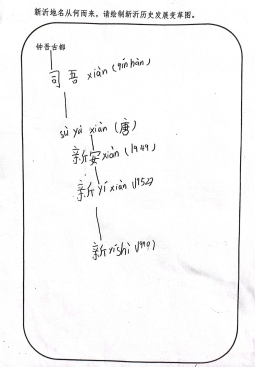 新沂地名从何而来，请绘制新沂历史发展变革图。
钟吾古都
司吾 xiàn (qín hàn)
sù yù xiàn (唐)
新安 xiàn (1949)
新 yí xiàn (1952)
新 yí shì (1990)